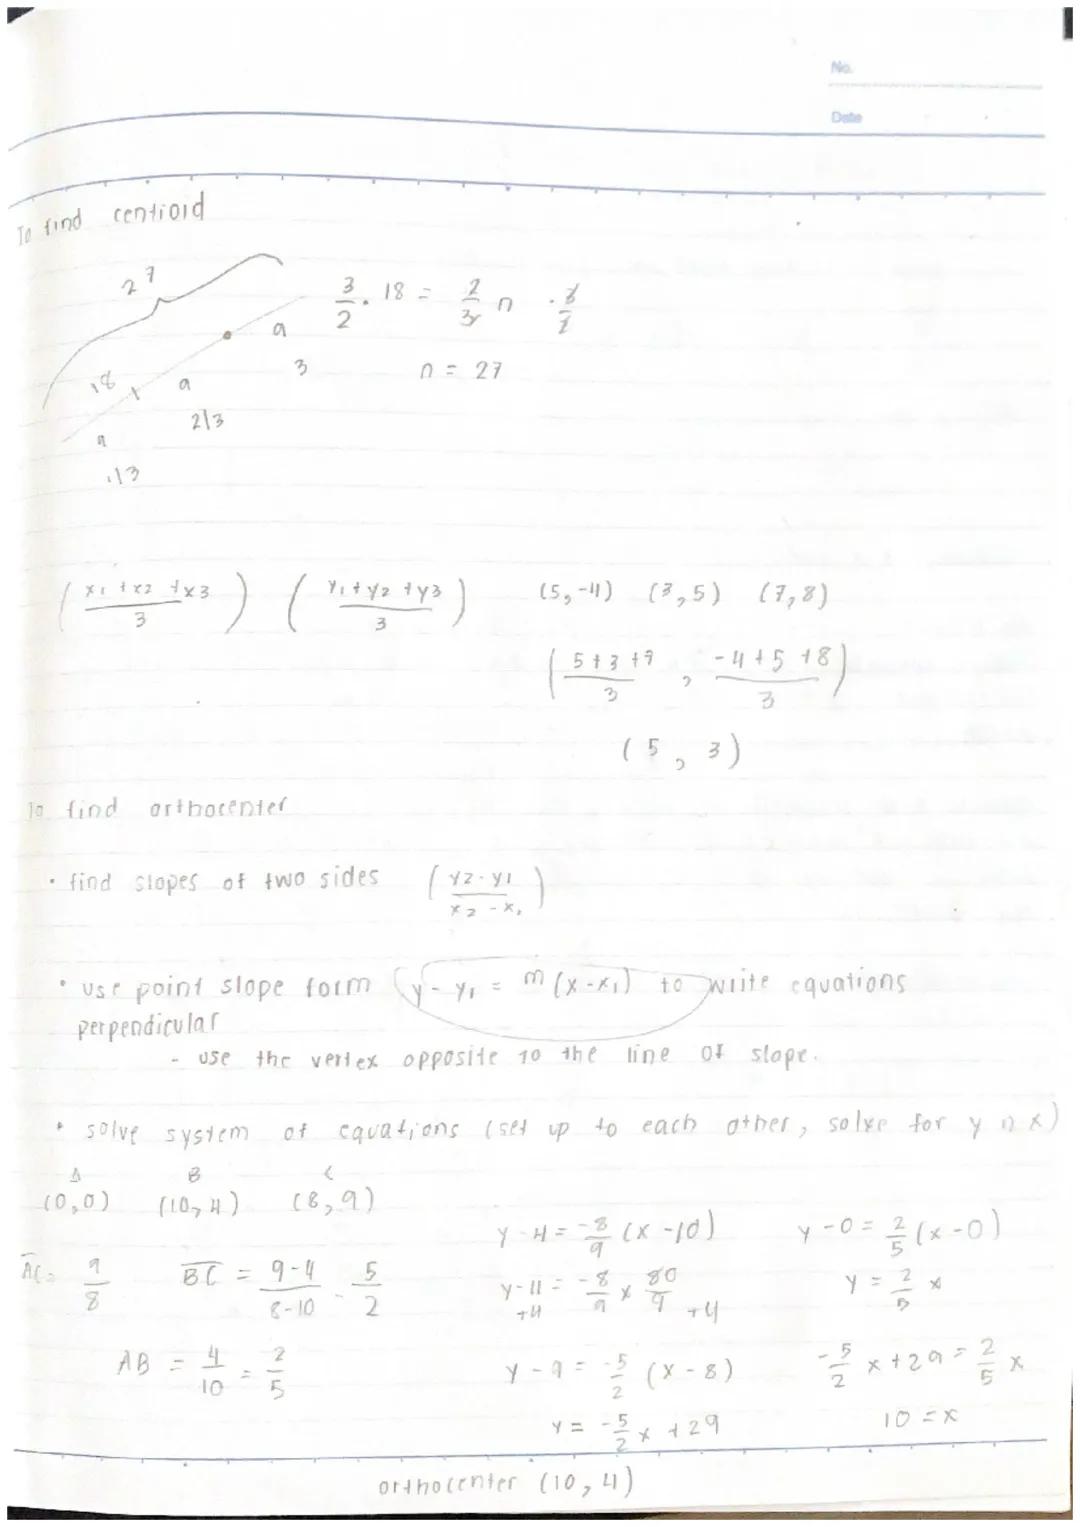 No.
Date
To find centroid
27
3/2 · 18 = 2/3 n · 3/2
18 a a 3
n = 27
2/3
a
1/3
(x1 + x2 + x3 / 3) (y1 + y2 + y3 / 3) (5,-4) (3,5) (7,8)
(5+3+7 / 3 , -4+5+8 / 3)
(5, 3)
To find orthocenter
• find slopes of two sides (y2-y1 / x2-x1)
• use point slope form (y - y1 = m(x-x1) to write equations
perpendicular
- use the vertex opposite to the line of slope.
• solve system of equations (set up to each other, solve for y n x)
A B C
(0,0) (10,4) (8,9)
y-4 = -8/9 (x-10) y-0 = 2/5 (x-0)
AC = 9/8 BC = 9-4 / 8-10 - 5/2
y-4 = -8/9 x 80/9 y = 2/5 x
+4 +4
AB = 4/10 = 2/5 y-9 = -5/2 (x-8) -5/2 x + 29 = 2/5 x
y = -5/2 x + 29 10 = x
orthocenter (10, 4)